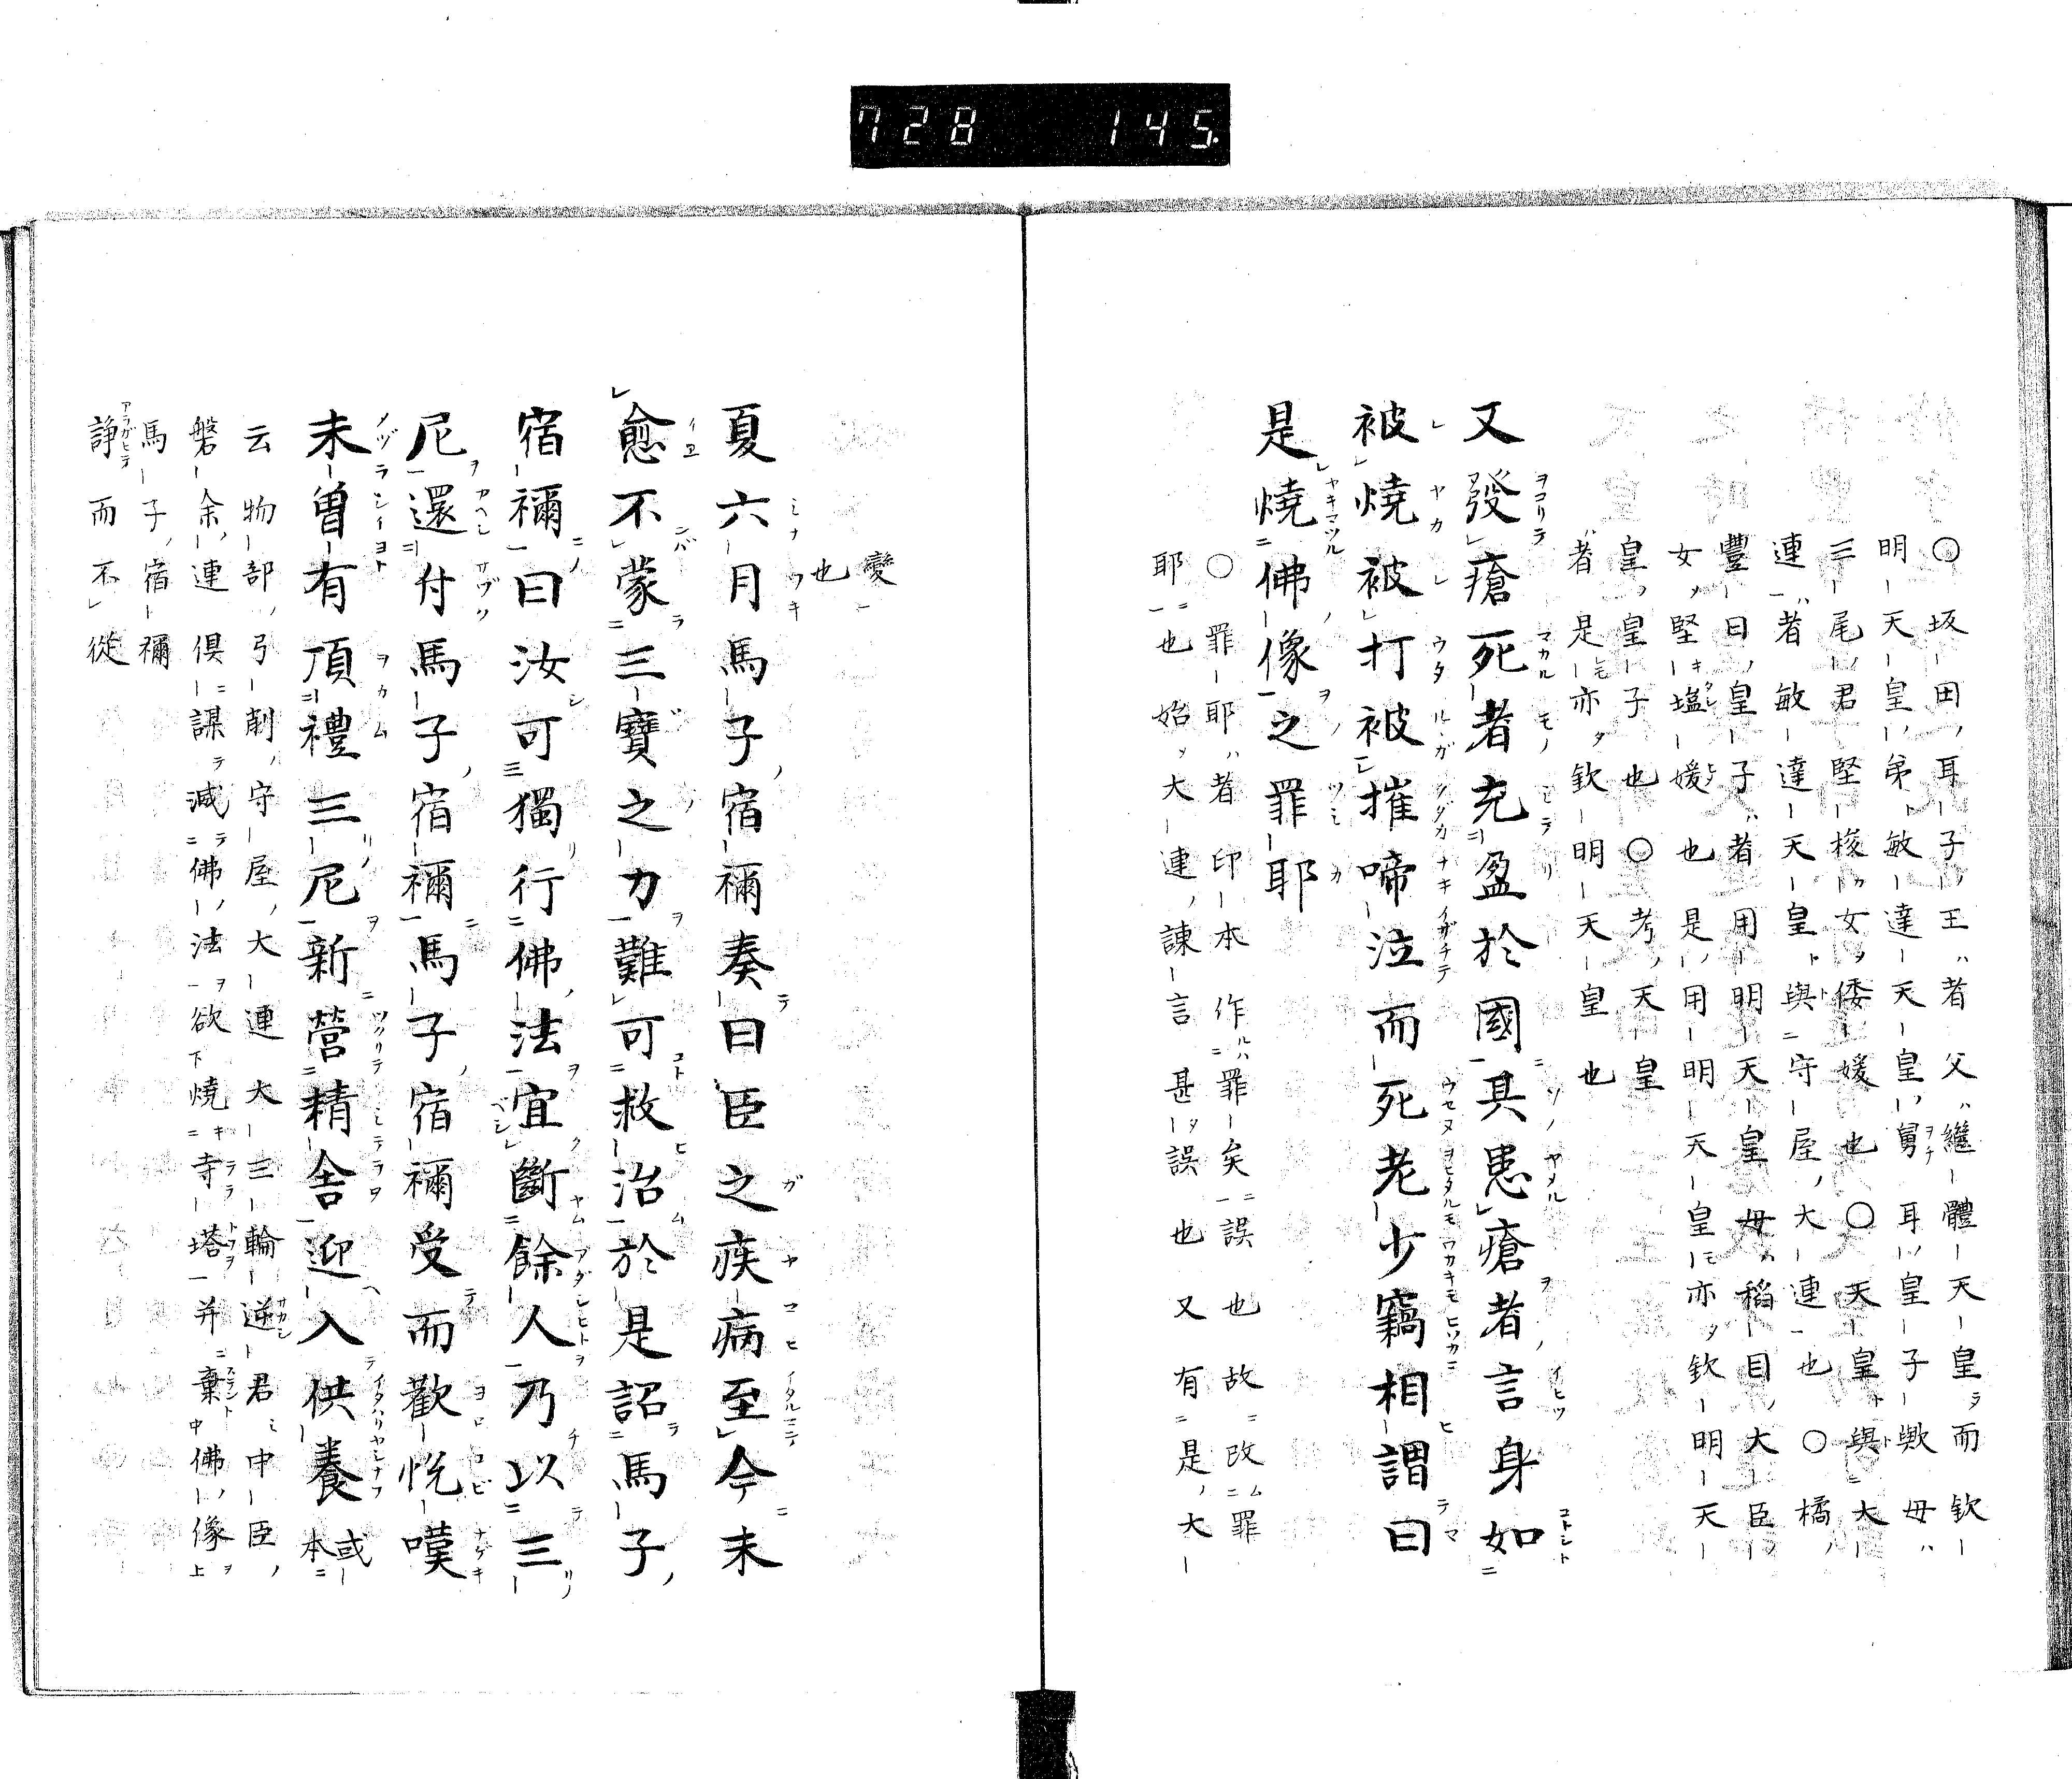 728 145.
〇坂田耳子王者父繼體天皇而欽
明天皇弟敏達天皇舅耳皇子歟母
三尾君堅楲女倭媛也〇天皇與大
連者敏達天皇與守屋大連也〇橘
豐日皇子者用明天皇母稻目大臣
女堅塩媛也是用明天皇亦欽明天
皇皇子也〇考天皇
者是亦欽明天皇也
又發瘡死者充盈於國其患瘡者言身如
被燒被打被摧啼泣而死老少竊相謂曰
是燒佛像之罪耶
〇罪耶者印本作罪矣誤也故改罪
耶也始大連諫言甚誤也又有是大
變
也
夏六月馬子宿禰奏曰臣之疾病至今未
愈不蒙三寶之力難可救治於是詔馬子
宿禰曰汝可獨行佛法宜斷餘人乃以三
尼還付馬子宿禰馬子宿禰受而歡悅嘆
未曽有頂禮三尼新營精舎迎入供養或
本
云物部弓削守屋大連大三輪逆君中臣
磐余連俱謀滅佛法欲燒寺塔并棄佛像
馬子宿禰
諍而不從